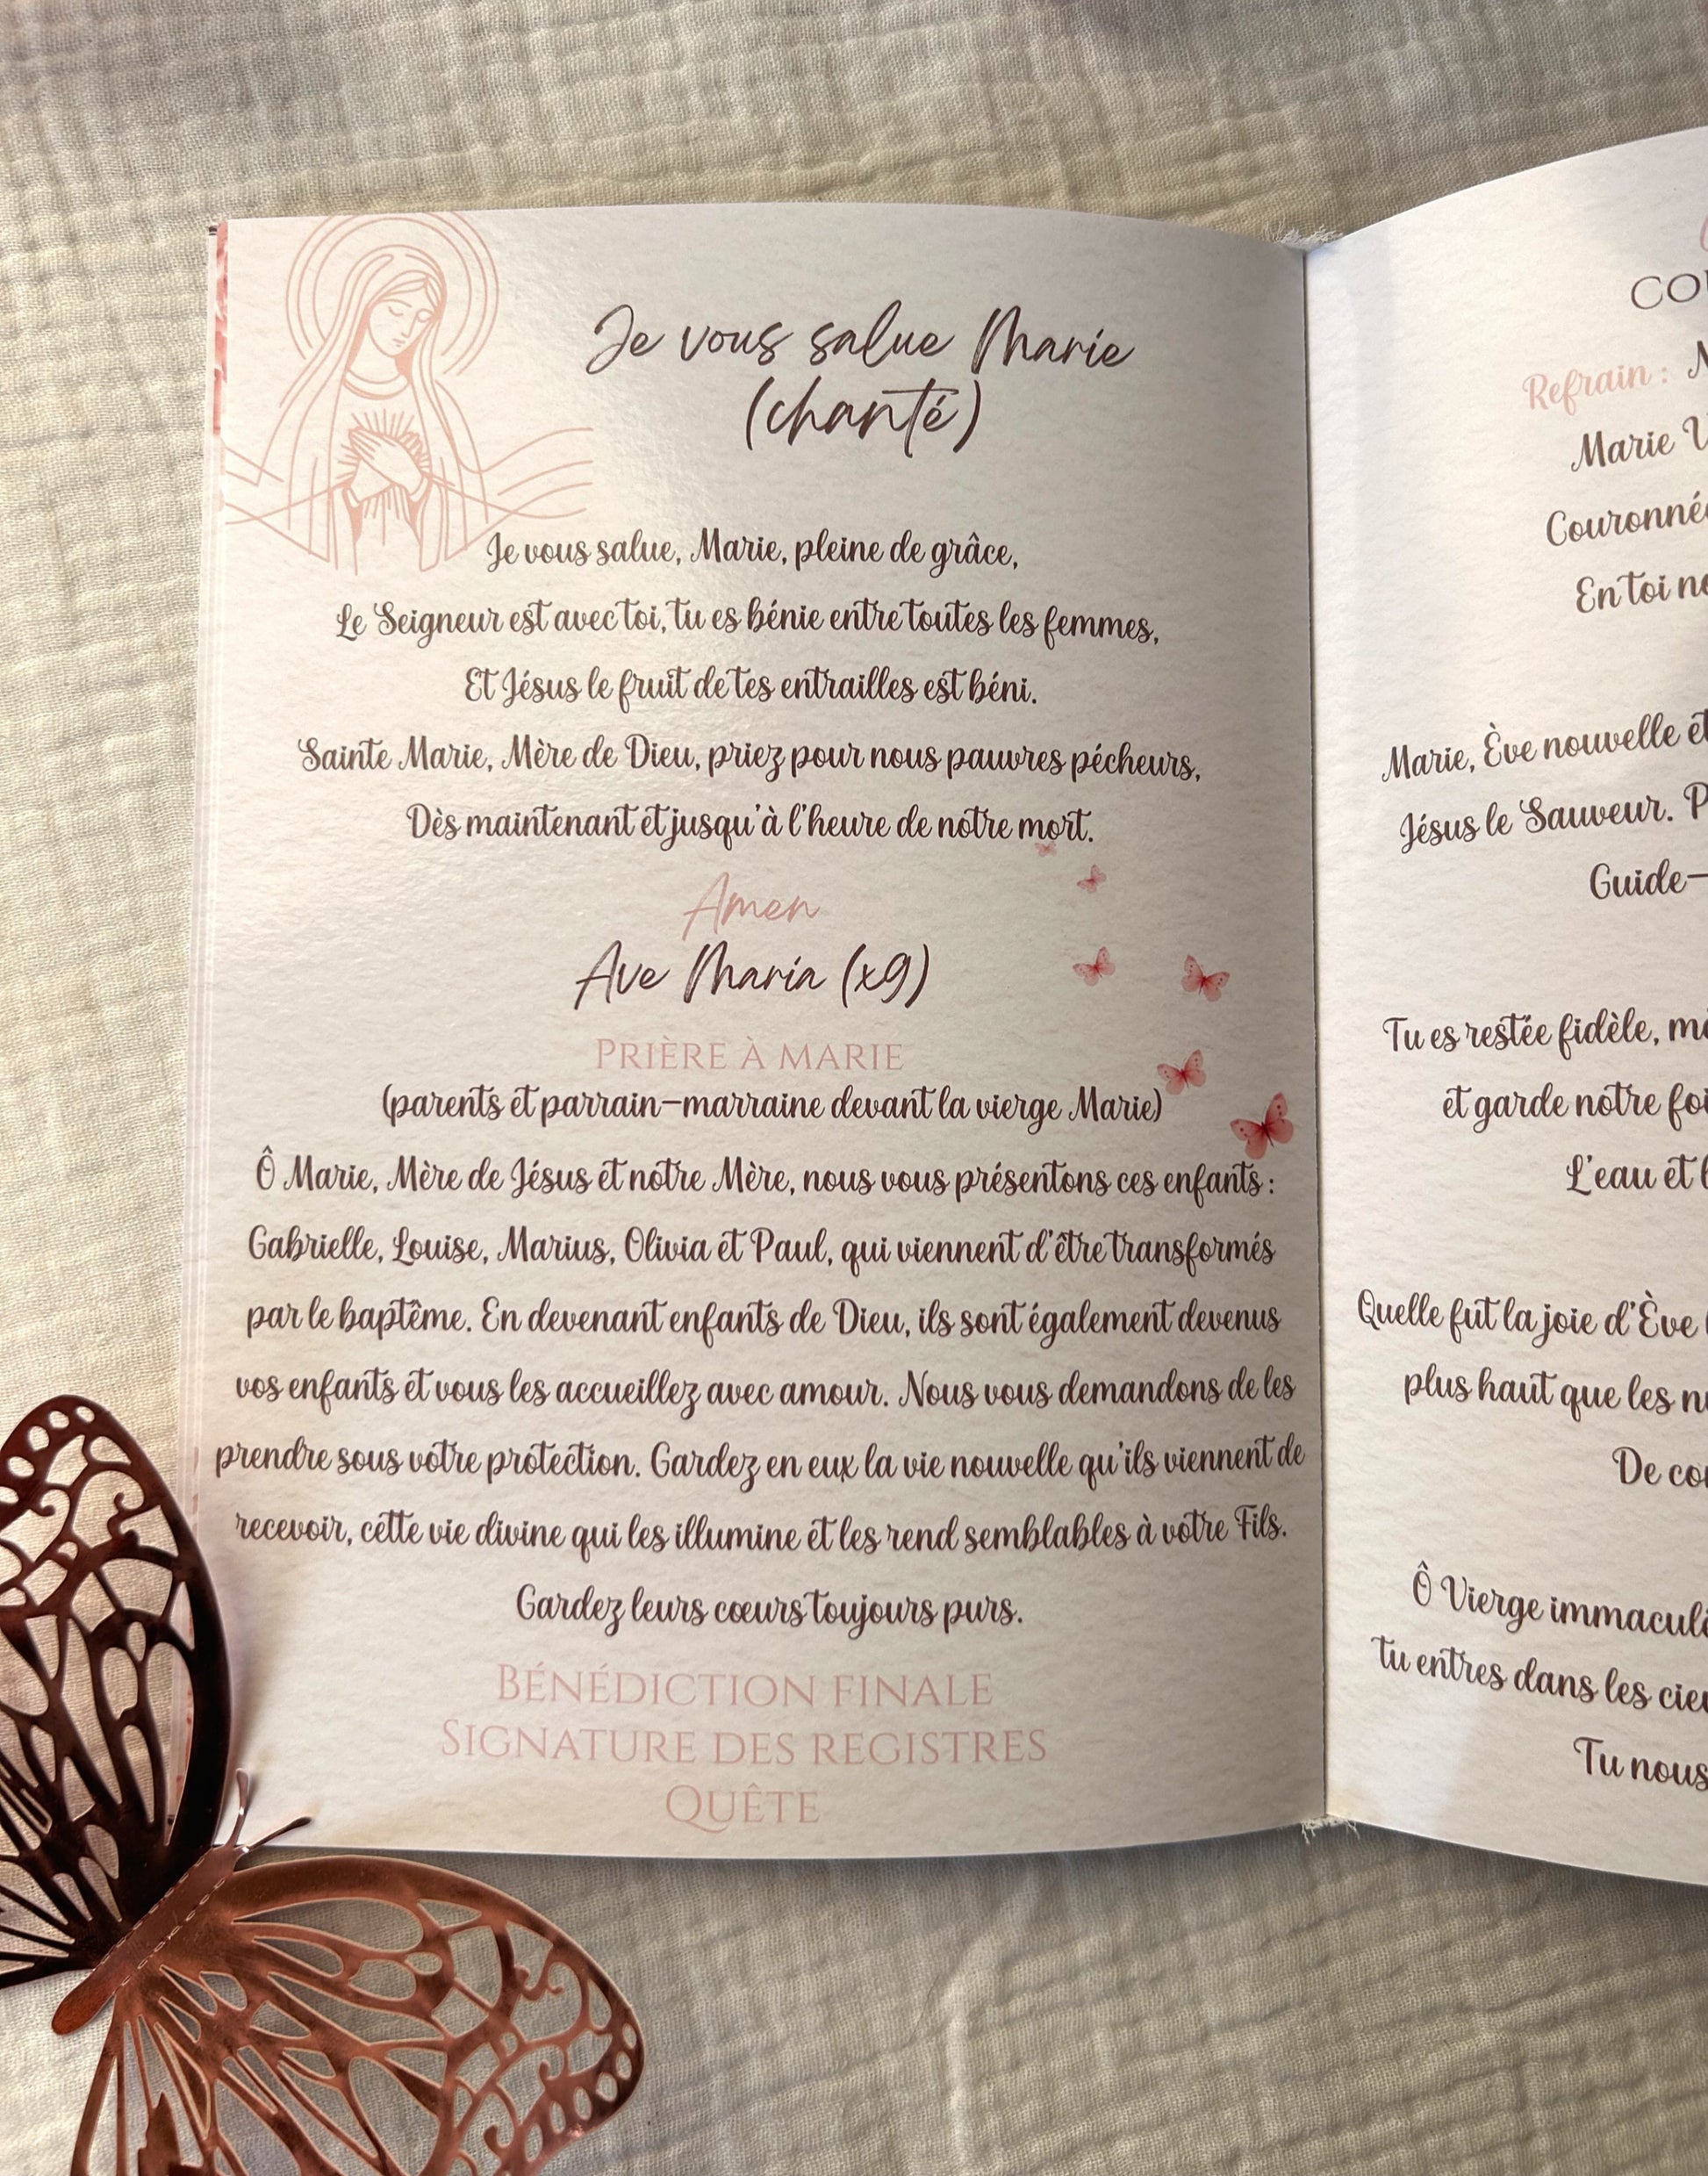 Je vous salue Marie
(chanté)
Je vous salue, Marie, pleine de grâce,
Le Seigneur est avec toi, tu es bénie entre toutes les femmes,
Et Jésus le fruit de tes entrailles est béni.
Sainte Marie, Mère de Dieu, priez pour nous pauvres pécheurs,
Dès maintenant et jusqu'à l'heure de notre mort.
Amen
Ave Maria (x9)
PRIÈRE À MARIE
(parents et parrain-marraine devant la vierge Marie)
Ô Marie, Mère de Jésus et notre Mère, nous vous présentons ces enfants :
Gabrielle, Louise, Marius, Olivia et Paul, qui viennent d'être transformés
par le baptême. En devenant enfants de Dieu, ils sont également devenus
vos enfants et vous les accueillez avec amour. Nous vous demandons de les
prendre sous votre protection. Gardez en eux la vie nouvelle qu'ils viennent de
recevoir, cette vie divine qui les illumine et les rend semblables à votre Fils.
Gardez leurs cœurs toujours purs.
BÉNÉDICTION FINALE
SIGNATURE DES REGISTRES
QUÊTE
Refrain :
Marie
En toi
Marie, Ève nouvelle et
Jésus le Sauveur.
Guide-
Tu es restée fidèle,
et garde notre
L'eau et
Quelle fut la joie d'Ève
plus haut que les
De
Ô Vierge
tu entres dans les
Tu nous